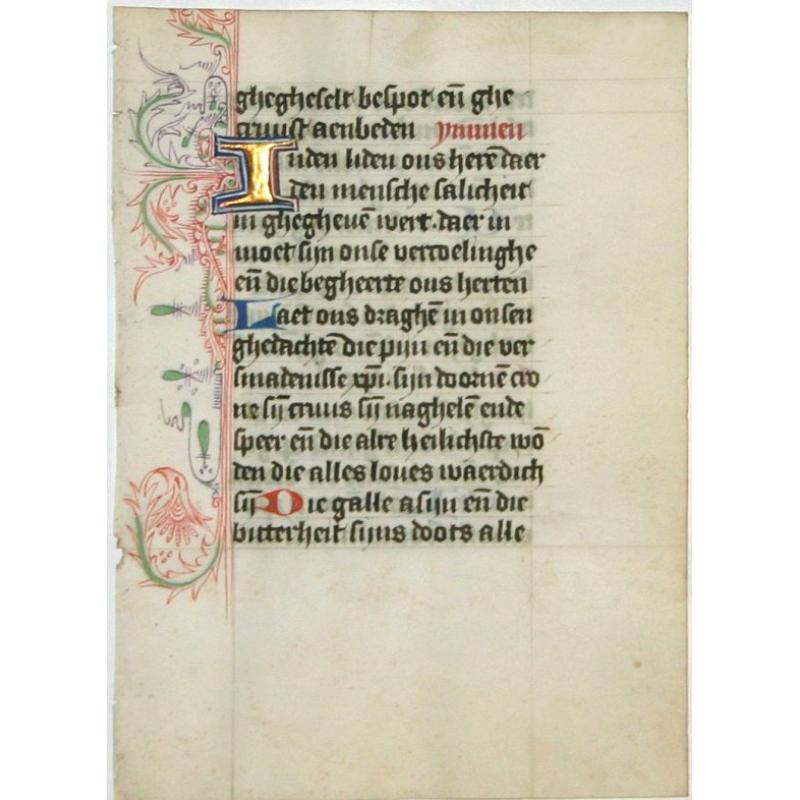 ghegheselt bespot en̄ ghe
cruust aenbeden ymnen
Inden liden ons herē daer
den mensche salicheit
in ghegheuē wert. daer in
moet sijn onse verwelinghe
en̄ die begheerte ons herten
Laet ons draghē in onsen
ghedachtē die pijn en̄ die ver
smadenisse xp̄i. sijn doornē cro
ne sij̄ cruus sij̄ naghelē ende
speer en̄ die alre heilichste wō
den die alles loues waerdich
sij̄ Die galle asijn en̄ die
bitterheit sijns doots alle